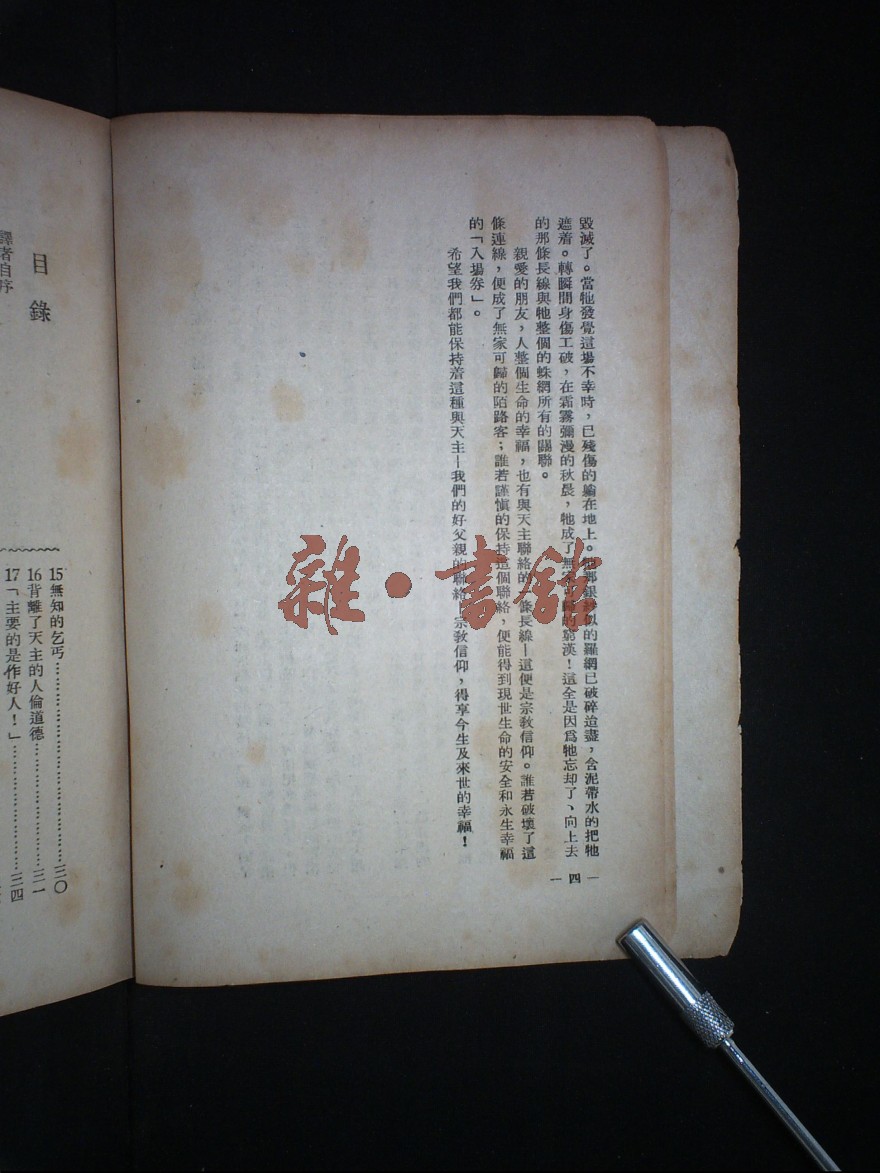 毀滅了。當牠發覺這場不幸時，已殘傷的躺在地上。牠那銀紗似的羅網已破碎迨盡，含泥帶水的把牠
遮着。轉瞬間身傷工破，在霜霧彌漫的秋晨，牠成了無家可歸的窮漢！這全是因爲牠忘却了、向上去
的那條長線與牠整個的蛛網所有的關聯。
親愛的朋友，人整個生命的幸福，也有與天主聯絡的一條長線—這便是宗敎信仰。誰若破壞了這
條連線，便成了無家可歸的陌路客；誰若謹愼的保持這個聯絡，便能得到現世生命的安全和永生幸福
的「入場劵」。
希望我們都能保持着這種與天主—我們的好父親的聯絡—宗敎信仰，得享今生及來世的幸福！
—四—
目錄
譯者自序
15無知的乞丐…………三〇
16背離了天主的人倫道德…………三一
17「主要的是作好人！」…………三四
雜·書館